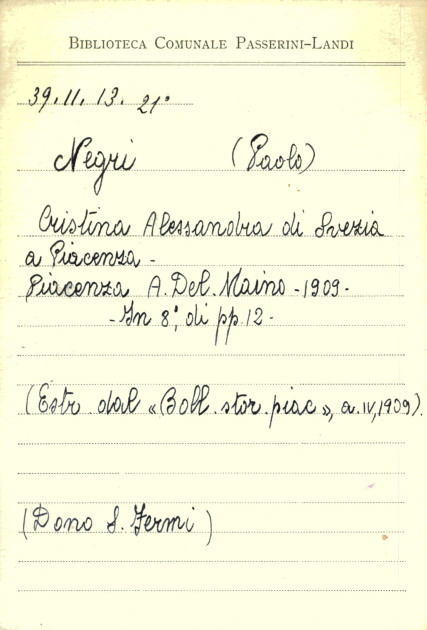 BIBLIOTECA COMUNALE PASSERINI-LANDI
39.11.13.21°
Negri (Paolo)
Cristina Alessandra di Svezia
a Piacenza -
Piacenza A. Del. Maino - 1909 -
- In 8°, di pp. 12 -
(Estr. dal «Boll. stor. piac», a. IV, 1909).
(Dono S. Fermi)